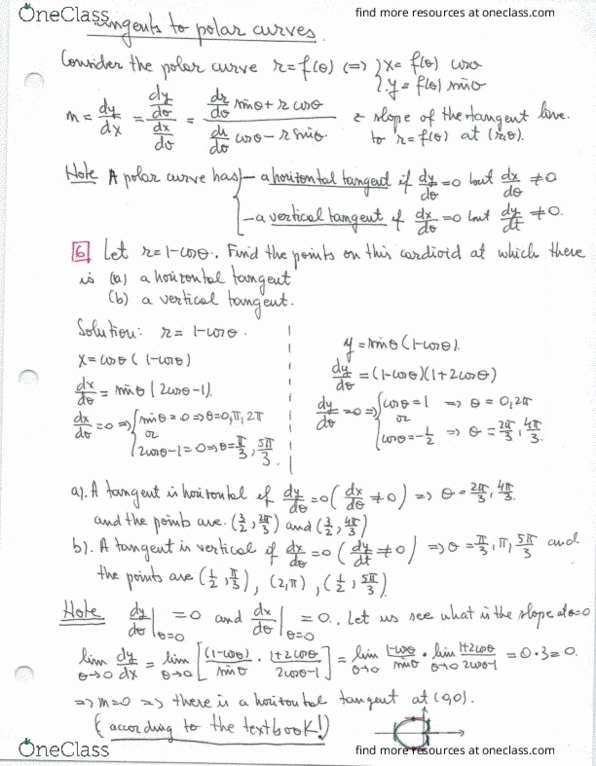 OneClass
find more resources at oneclass.com
Tangents to polar curves.
Consider the polar curve r = f(θ) (=> { x = f(θ) cosθ
y = f(θ) sinθ
m = dy/dx = (dy/dθ)/(dx/dθ) = (dr/dθ sinθ + r cosθ)/(dr/dθ cosθ - r sinθ) = slope of the tangent line
to r = f(θ) at (r,θ).
Note A polar curve has { - a horizontal tangent if dy/dθ = 0 but dx/dθ ≠ 0
- a vertical tangent if dx/dθ = 0 but dy/dt ≠ 0.
6 Let r = 1 - cosθ. Find the points on this cardioid at which there
is (a) a horizontal tangent
(b) a vertical tangent.
Solution: r = 1 - cosθ.
x = cosθ (1 - cosθ)
dx/dθ = sinθ (2cosθ - 1).
dx/dθ = 0 => { sinθ = 0 => θ = 0, π, 2π
or
2cosθ - 1 = 0 => θ = π/3, 5π/3.
y = sinθ (1 - cosθ).
dy/dθ = (1 - cosθ)(1 + 2cosθ)
dy/dθ = 0 => { cosθ = 1 => θ = 0, 2π
or
cosθ = -1/2 => θ = 2π/3, 4π/3.
a). A tangent is horizontal if dy/dθ = 0 (dx/dθ ≠ 0) => θ = 2π/3, 4π/3.
and the points are (3/2, 2π/3) and (3/2, 4π/3)
b). A tangent is vertical if dx/dθ = 0 (dy/dt ≠ 0) => θ = π/3, π, 5π/3 and
the points are (1/2, π/3), (2, π), (1/2, 5π/3).
Note dy/dθ|θ=0 = 0 and dx/dθ|θ=0 = 0. Let us see what is the slope at θ=0
lim θ→0 dy/dx = lim θ→0 [(1-cosθ)/sinθ · (1+2cosθ)/(2cosθ-1)] = lim θ→0 (1-cosθ)/sinθ · lim θ→0 (1+2cosθ)/(2cosθ-1) = 0·3 = 0.
=> m = 0 => there is a horizontal tangent at (0,0).
(according to the textbook!)
OneClass
find more resources at oneclass.com